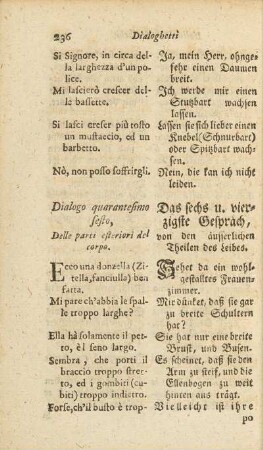 236 Dialoghetti
Si Signore, in circa del-
la larghezza d'un po-
lice.
Mi lascierò crescer del-
le basette.
Si lasci crescer più tosto
un mustaccio, ed un
barbetto.
Nò, non posso soffrirgli.
Dialogo quarantesimo
sesto,
Delle parti esteriori del
corpo.
Ecco una donzella (Zi-
tella, fanciulla) ben
fatta.
Mi pare ch'abbia le spal-
le troppo larghe?
Ella hà solamente il pet-
to, è l seno largo.
Sembra, che porti il
braccio troppo stret-
to, ed i gombiti (cu-
biti) troppo indietro.
Forse, ch'il busto è trop-
Ja, mein Herr, ohnge-
fehr einen Daumen
breit.
Ich werde mir einen
Stutzbart wachsen
lassen.
Lassen sie sich lieber einen
Knebel (Schnurbart)
oder Spitzbart wach-
sen.
Nein, die kan ich nicht
leiden.
Das sechs u. vier-
zigste Gespräch,
von den äusserlichen
Theilen des Leibes.
Sehet da ein wohl-
gestaltetes Frauen-
zimmer.
Mir dünket, daß sie gar
zu breite Schultern
hat?
Sie hat nur eine breite
Brust, und Busen.
Es scheinet, daß sie den
Arm zu steif, und die
Ellenbogen zu weit
hinten aus trägt.
Vielleicht ist ihre
po